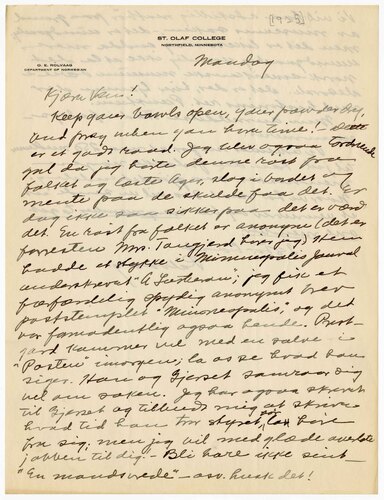 ST. OLAF COLLEGE
NORTHFIELD, MINNESOTA
O. E. ROLVAAG
DEPARTMENT OF NORWEGIAN
Mandag
Kjære Ven!
Keep your bowls open, your powder dry,
and pray when you have time! Dette
er et godt raad. Jeg blev ogsaa
gal da jeg hørte denne røst fra
folket og læste Ager, slog i bordet og
mente paa de skilde fra det. Er
dag ikke saa sikker paa det er værd
det. En røst fra folket er anonym (det er
forresten Mrs. Tangjerd hører jeg) Hun
havde et stykke i Minneapolis Journal
underskrevet "A Lutheran"; jeg fik et
forfærdelig spydig anonymt brev
poststemplet "Minneapolis", og det
var formodentlig ogsaa hende.
kommer vel med en salve i
"Posten" imorgen; la os se hvad han
siger. Han og Gjerset samraar dig
vel om saken. Jeg har ogsaa skrevet
til Gjerset og tilbudt mig at skrive
hvad tid han tror styret bør høre
fra sig, men jeg vil med glæde overlate
jobben til dig. - Bli bare ikke sint -
"En mands vrede" - osv. husk det!